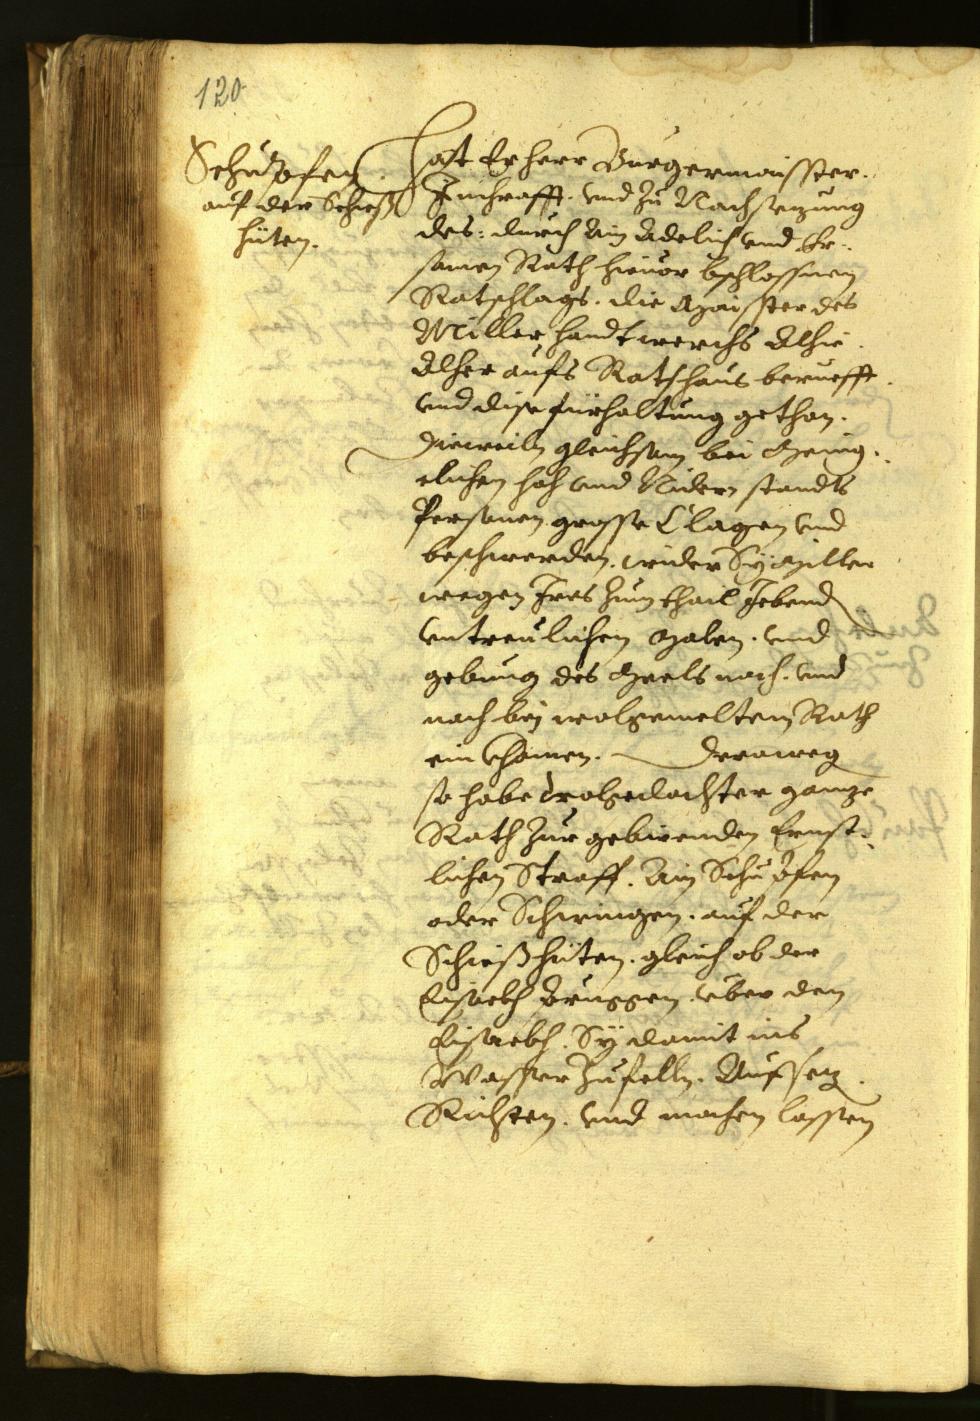 120
Schupfen
auf der Schieß
hüten.
Hat Er herr Burgermaisster.
In chrafft. und zu Nachsetzung
des: durch Ain Adelich und Er-
samen Rath hieuor bschlossnen
Ratschlags. die Maisster des
Miller handtwerchs Alhie.
Alher aufs Rathhaus beruefft.
und dise fürhaltung gethan.
Dieweiln gleichsam bei Menig-
clichen hoh und Nidern standts
Personen grosse Clagen und
beschwerden. wider Sy Miller
wegen Ires zum thail Iebend
untreulichen Malen. und
gebung des Meels nach. und
nach bey wolgemeltem Rath
ein khomen. Derowegen
so habe wolgedachter ganze
Rath zur gebierenden Ernst-
lichen Straff. Ain Schupfen
oder Schwingen. auf der
Schießhüten. gleich ob der
Eisackh Bruggen. über den
Eisackh. Sy damit ins
Wasser zufelln. Aufsetz.
Richten. und machen lassen